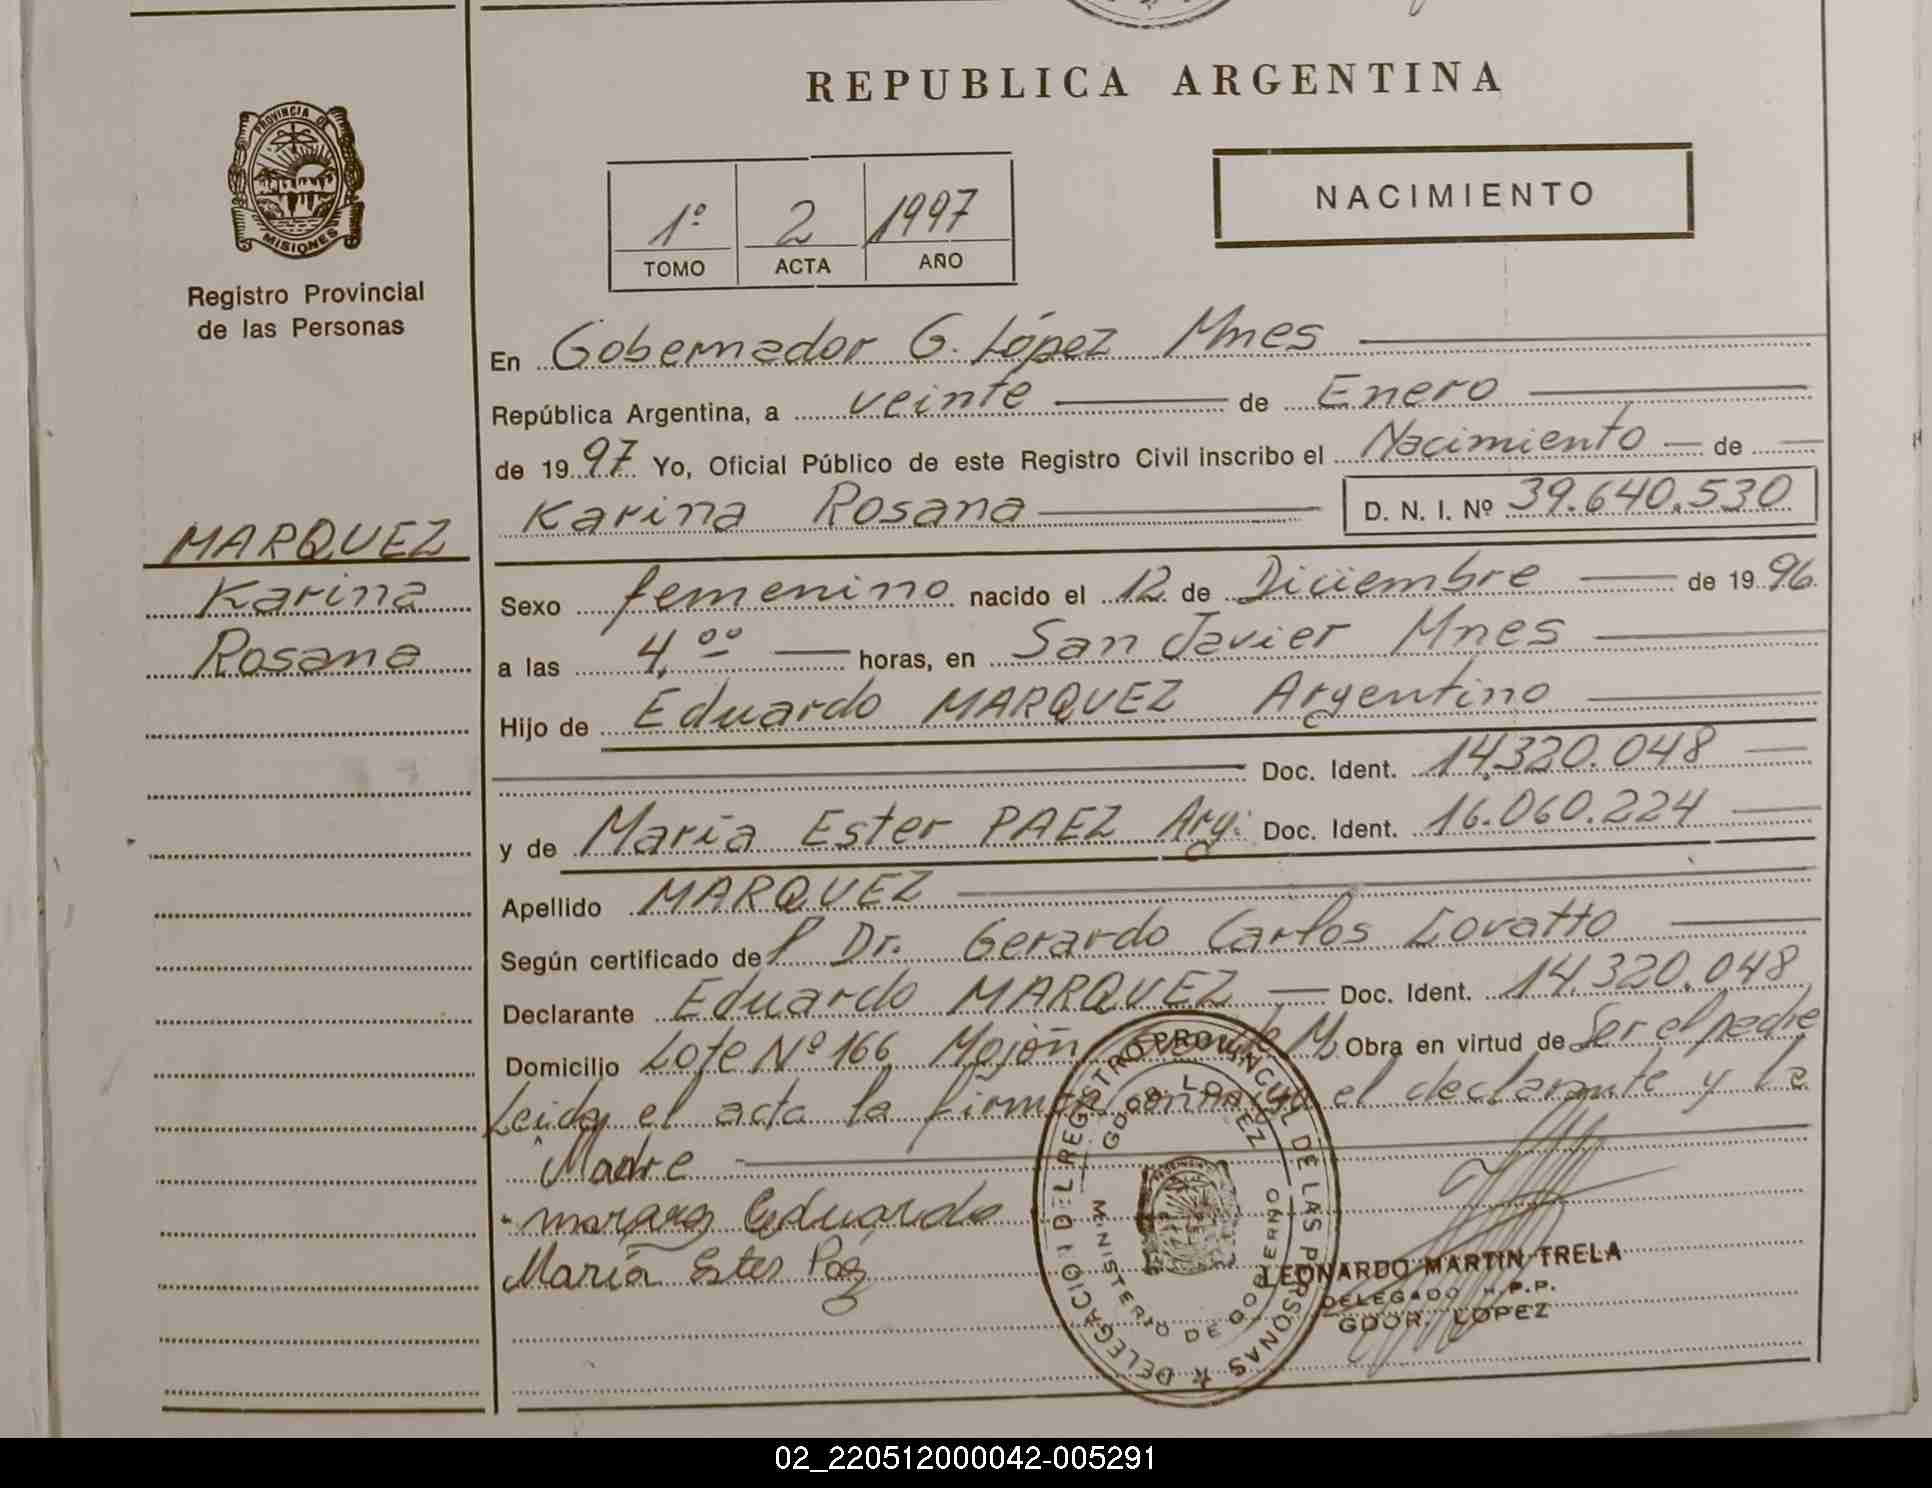 REPUBLICA ARGENTINA
PROVINCIA DE
MISIONES
Registro Provincial
de las Personas
1º 2 1997
TOMO ACTA AÑO
NACIMIENTO
En Gobernador G. López Mnes
República Argentina, a veinte de Enero
de 1997 Yo, Oficial Público de este Registro Civil inscribo el Nacimiento de
Karina Rosana D. N. I. Nº 39.640.530
MARQUEZ
Karina
Rosana
Sexo femenino nacido el 12 de Diciembre de 1996
a las 4,ºº horas, en San Javier Mnes
Hijo de Eduardo MARQUEZ Argentino
Doc. Ident. 14.320.048
y de María Ester PAEZ Arg: Doc. Ident. 16.060.224
Apellido MARQUEZ
Según certificado de P Dr. Gerardo Carlos Lovatto
Declarante Eduardo MARQUEZ Doc. Ident. 14.320.048
Domicilio Lote Nº 166 Mojón Obra en virtud de Ser el padre
Leida el acta la firman el declarante y la
Madre
Eduardo
María Ester Paez
DELEGACION DEL REGISTRO PROVINCIAL DE LAS PERSONAS
GDOR. LOPEZ
MINISTERIO DE GOBIERNO
LEONARDO MARTIN TRELA
DELEGADO R.P.P.
GDOR. LOPEZ
02_220512000042-005291